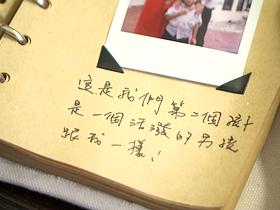 這是我們第二個孩子
是一個活潑的男孩
跟我一樣!